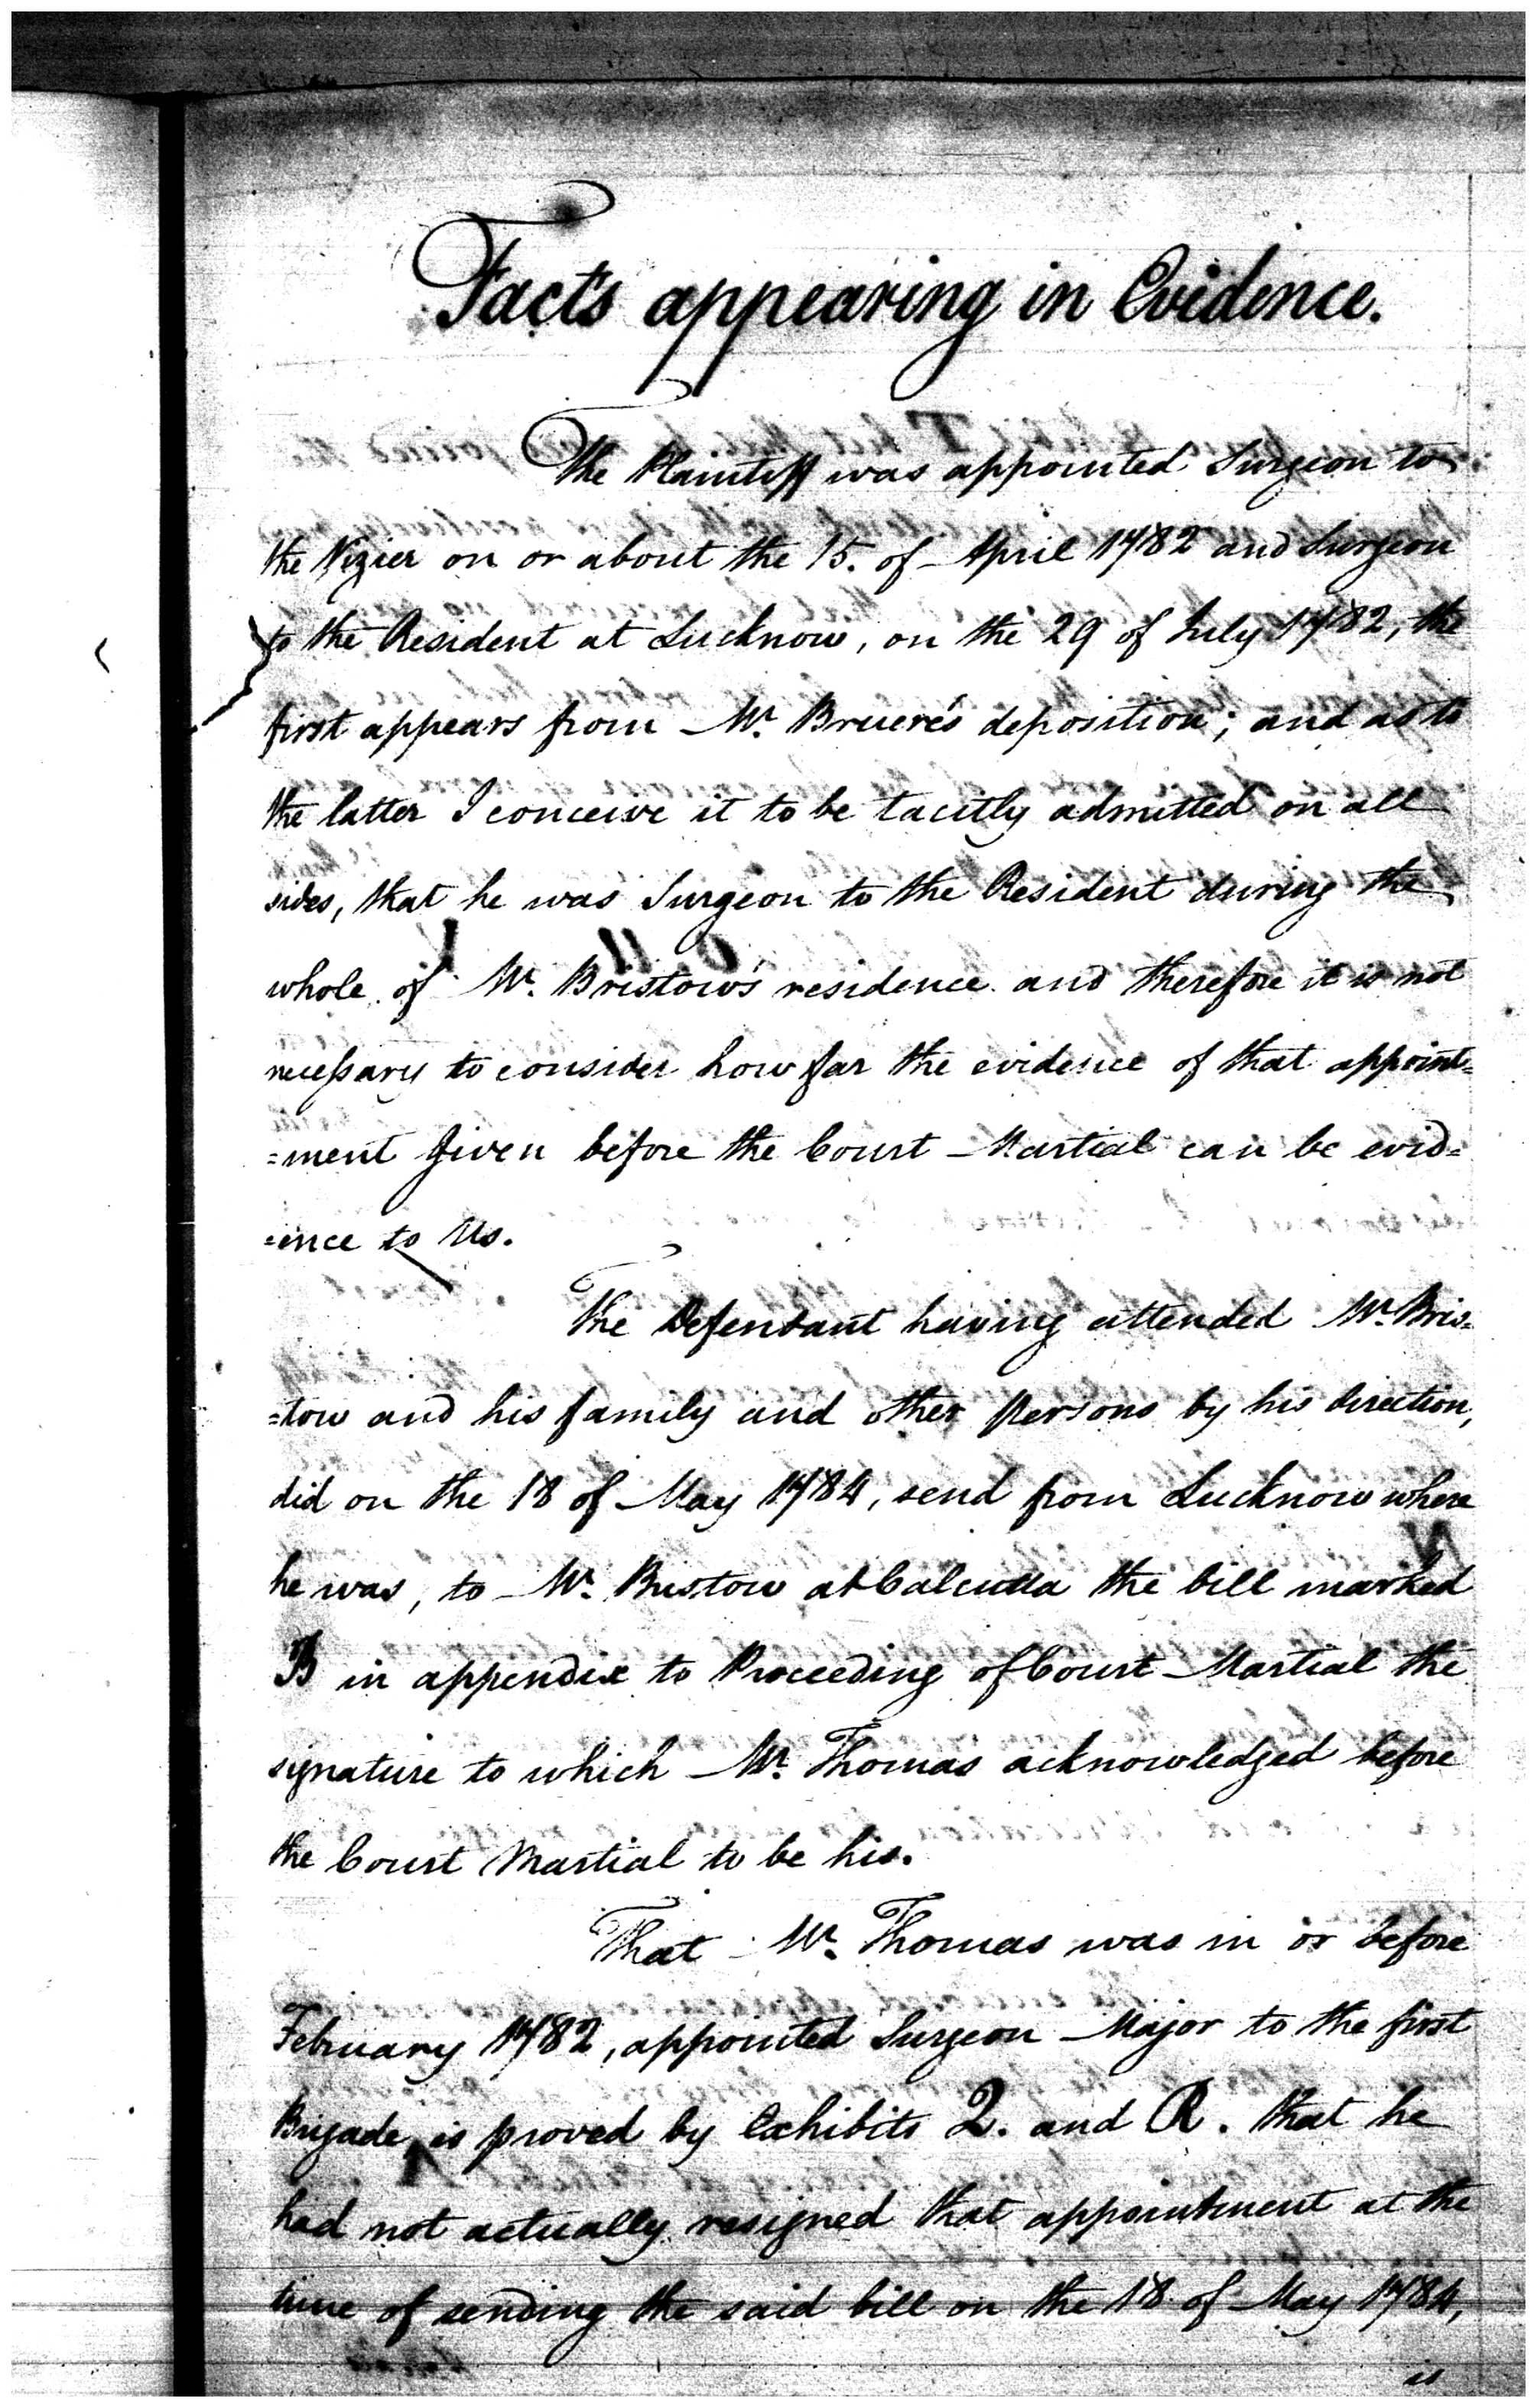 Facts appearing in Evidence.
The Plaintiff was appointed Surgeon to
the Vizier on or about the 15. of April 1782 and Surgeon
to the Resident at Lucknow, on the 29 of July 1782, the
first appears from Mr. Bruere's deposition; and as to
the latter I conceive it to be tacitly admitted on all
sides, that he was Surgeon to the Resident during the
whole of Mr. Bristow's residence and therefore it is not
necessary to consider how far the evidence of that appoint=
=ment given before the Court Martial can be evid=
=ence to Us.
The Defendant having attended Mr. Bris=
=tow and his family and other persons by his direction,
did on the 18 of May 1784, send from Lucknow where
he was, to Mr. Bristow at Calcutta the bill marked
B in appendix to Proceeding of Court Martial the
signature to which Mr. Thomas acknowledged before
the Court Martial to be his.
That Mr. Thomas was in or before
February 1782, appointed Surgeon Major to the first
Brigade, is proved by Exhibits Q. and R. that he
had not actually resigned that appointment at the
time of sending the said bill on the 18 of May 1784,
is